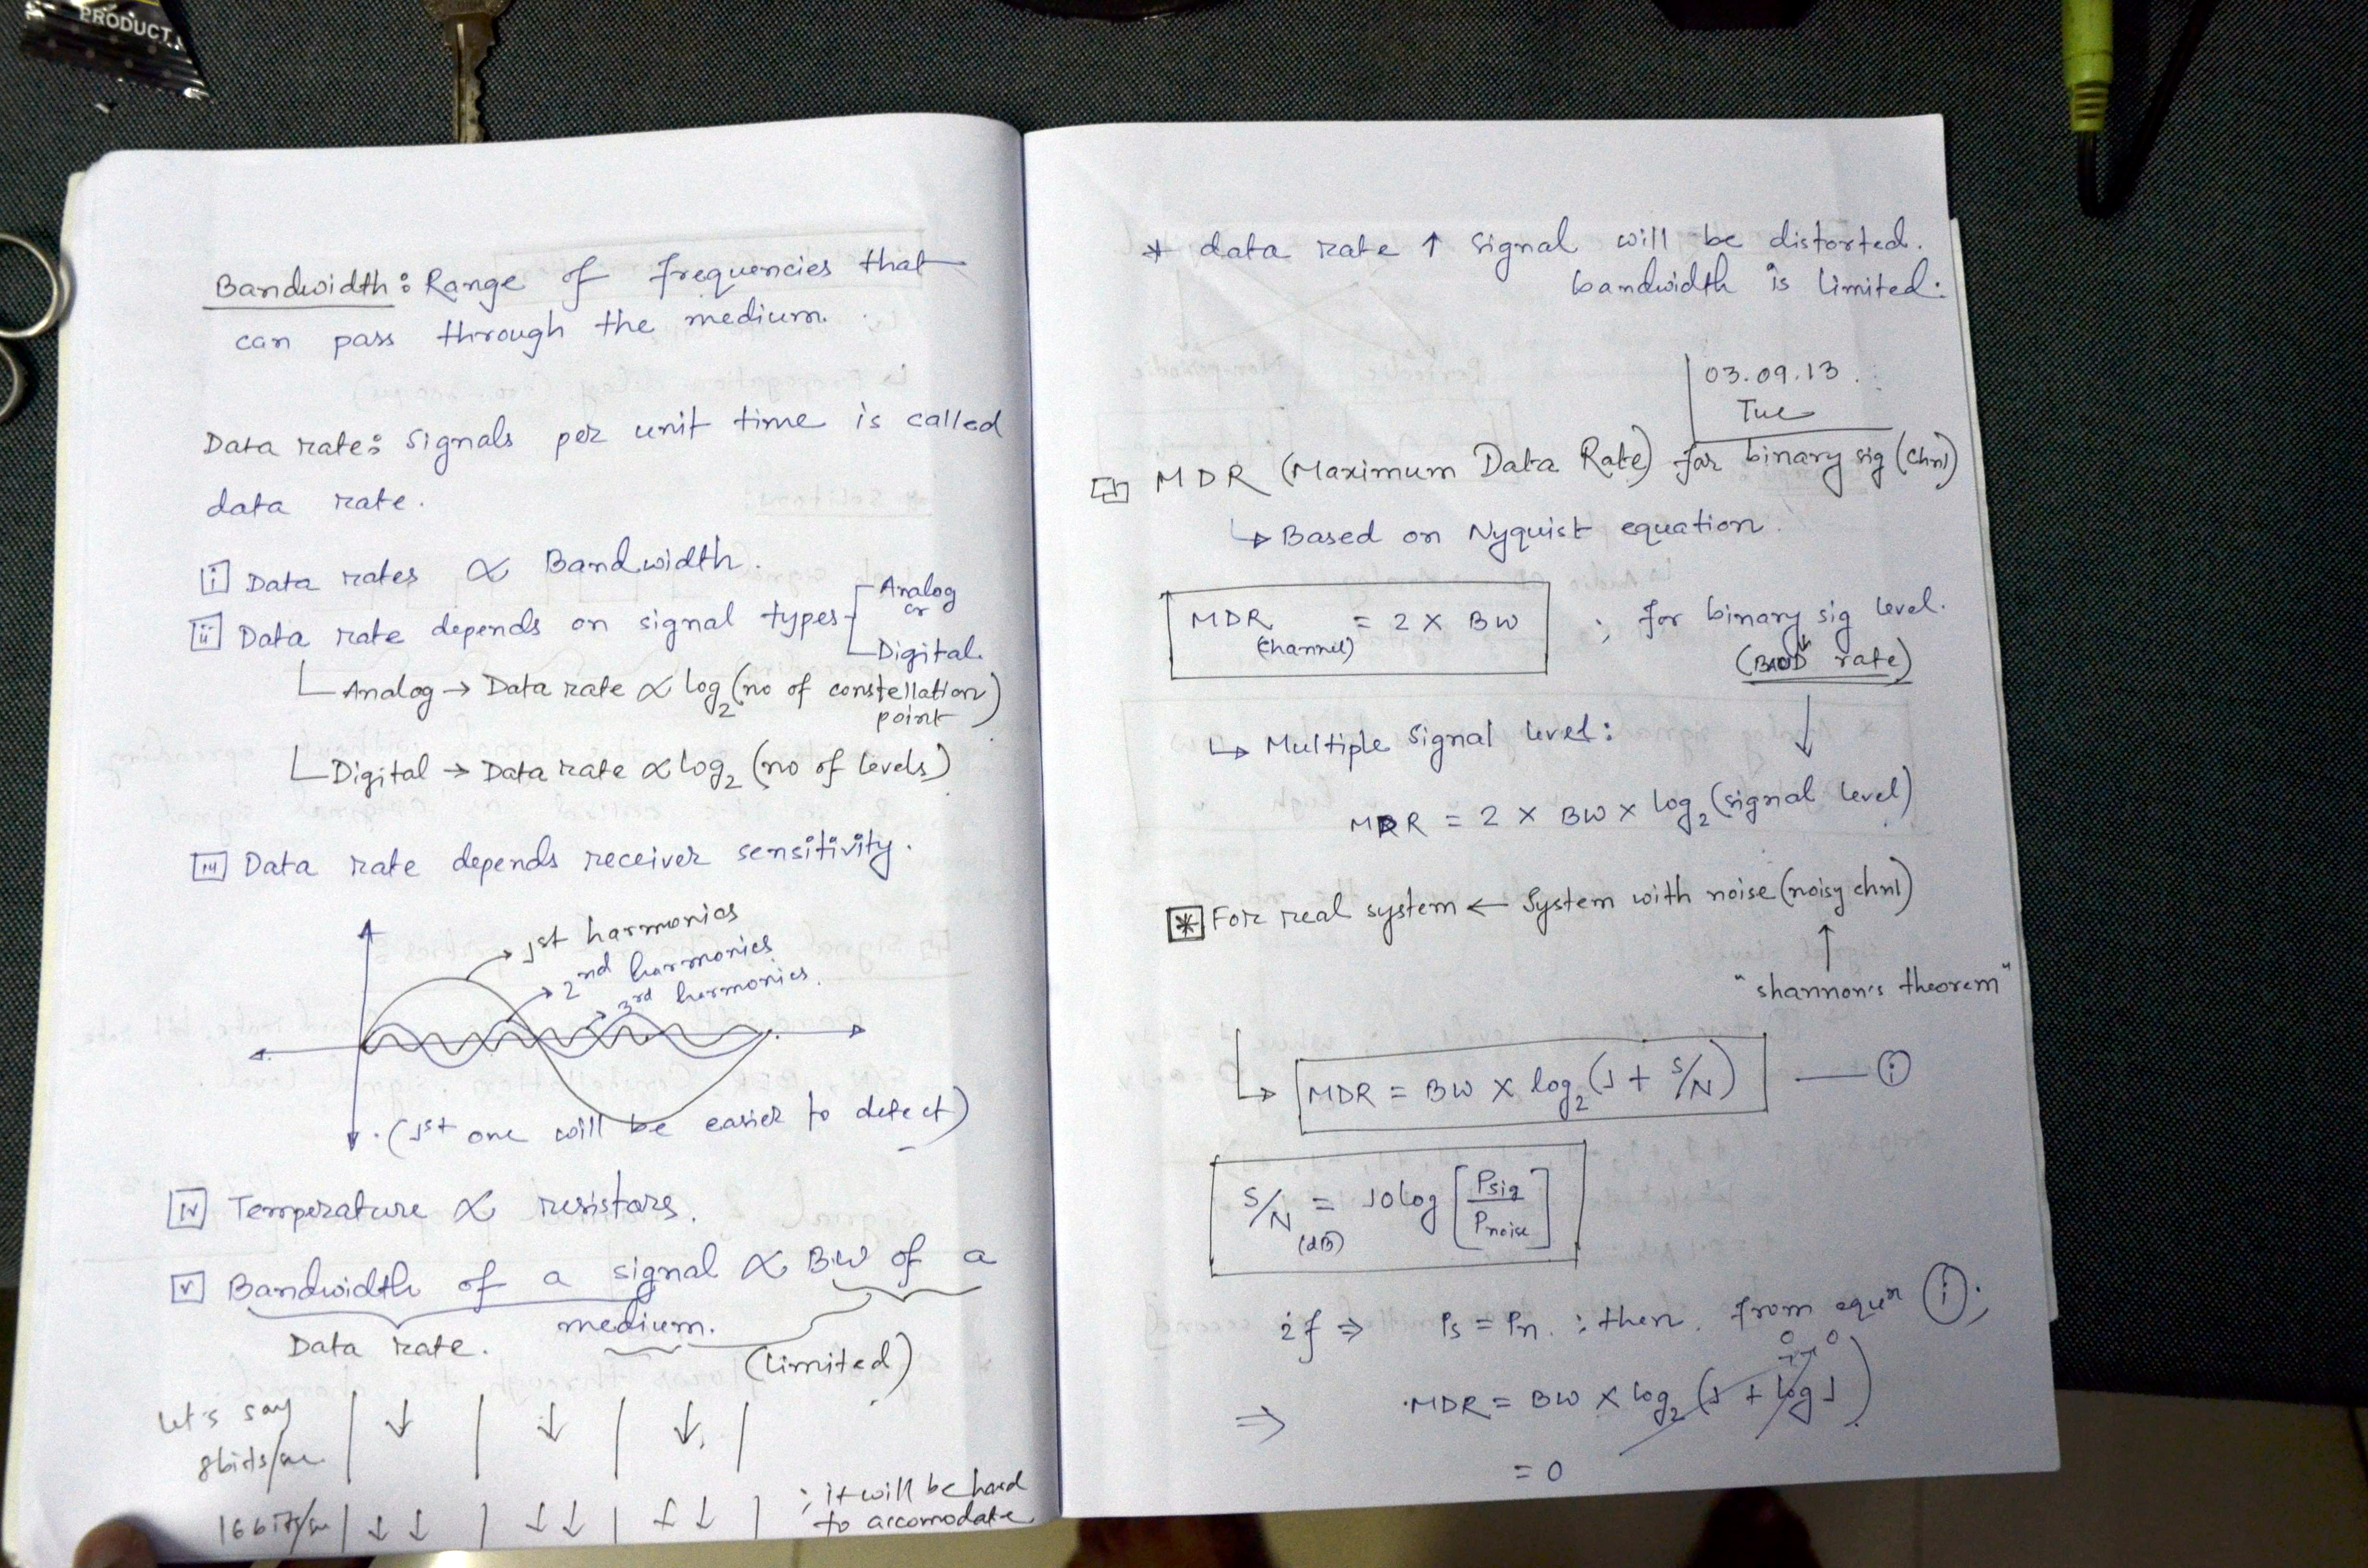 PRODUCTS
Bandwidth: Range of frequencies that
can pass through the medium.
Data rate: Signals per unit time is called
data rate.
i Data rates ∝ Bandwidth.
ii Data rate depends on signal types
Analog
or
Digital.
Analog → Data rate ∝ log₂(no of constellation
point)
Digital → Data rate ∝ log₂ (no of levels)
iii Data rate depends receiver sensitivity.
1st harmonics
2nd harmonics
3rd harmonics.
(1st one will be easier to detect)
iv Temperature ∝ resistors.
v Bandwidth of a signal ∝ BW of a
medium.
Data rate.
(limited)
Let's say
8bits/
16bits/
; it will be hard
to accomodate
* data rate ↑ signal will be distorted.
bandwidth is limited.
03.09.13
Tue
MDR (Maximum Data Rate) for binary sig (chnl)
↳ Based on Nyquist equation.
MDR (channel) = 2 × BW ; for binary sig level.
(BAUD rate)
↳ Multiple signal level:
MDR = 2 × BW × log₂ (signal level)
* For real system ← System with noise (noisy chnl)
↑
"shannon's theorem"
↳ MDR = BW × log₂(1 + S/N) — i
S/N (dB) = 10log [Psig/Pnoise]
if ⇒ Ps = Pn. ; then, from equⁿ i;
0 0
⇒ MDR = BW × log₂ (1 + log 1)
= 0